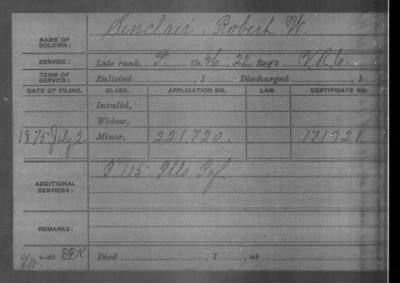 NAME OF SOLDIER: Sinclair, Robert W.
SERVICE: Late rank, P. Co. H, 22 Reg't V.R.C.
TERM OF SERVICE: Enlisted , 1 Discharged , 1
DATE OF FILING. CLASS. APPLICATION NO. LAW. CERTIFICATE NO.
Invalid,
Widow,
1875 July 2. Minor, 221,720. 171921
ADDITIONAL SERVICES: P 115 Ills Inf
REMARKS:
Died , 1 , at